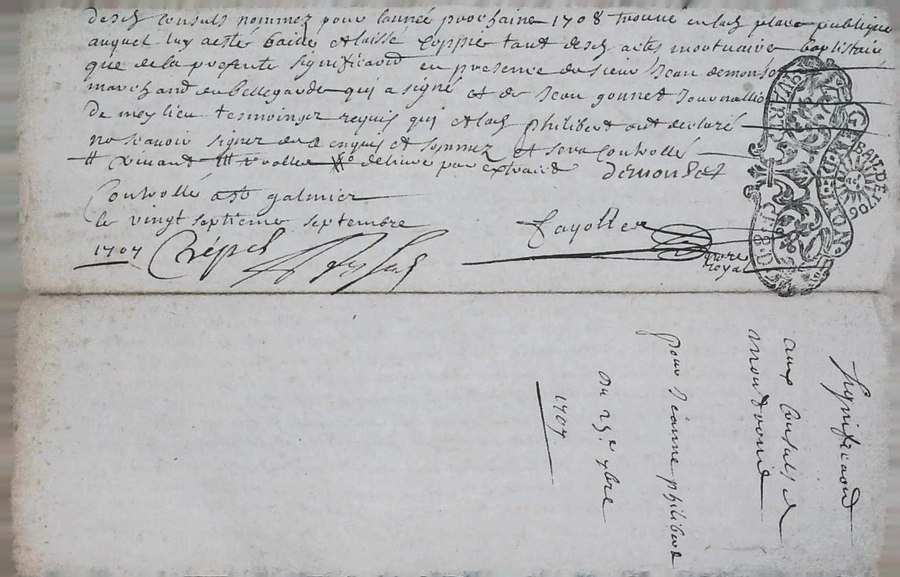 desd consuls nommez pour lannée prochaine 1708 trouvé en lad place publique
auquel luy a esté baillé et laissé coppie tant desd actes mortuaire baptistaire
que de la presente signification en presence de sieur Jean
marchand de bellegarde qui a signé et de Jean gonnet Journallier
de mesme lieu tesmoingz requis qui et lad philibert ont declaré
ne scavoir signer de ce enquis et sommez et sera Controllé
delivré par extraict
Controllé a st galmier
le vingt septieme septembre
1707 Crépet
fayolle
notre
royal
GEN. DE LYON
1706
Signification
aux Consuls de
pour Jeanne philibert
du 25e 7bre
1707